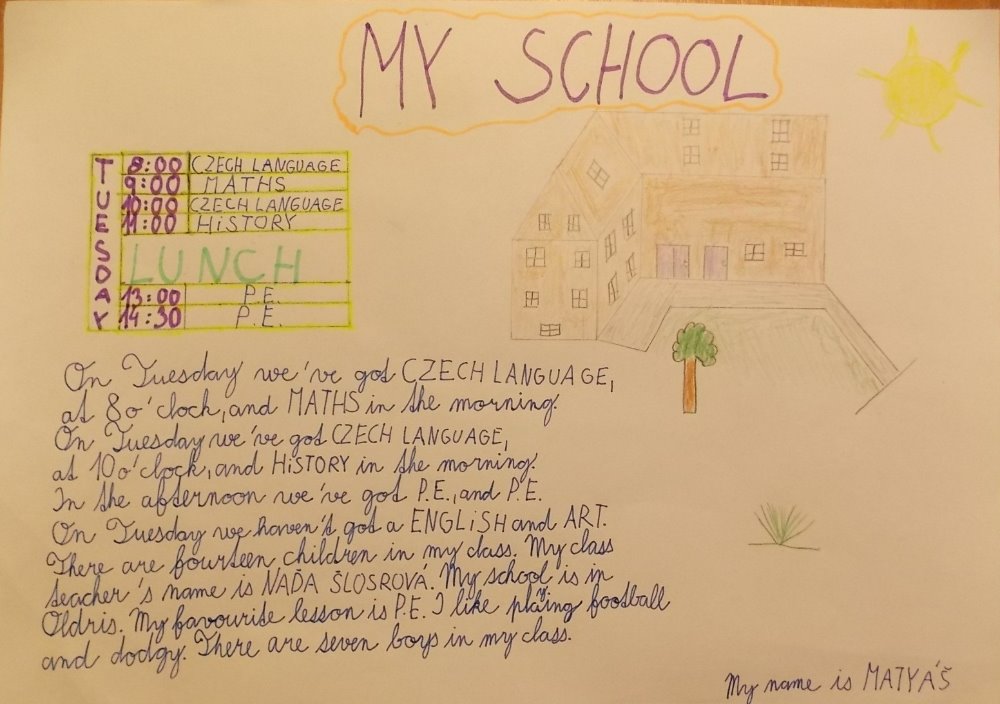 MY SCHOOL
TUESDAY
8:00 CZECH LANGUAGE
9:00 MATHS
10:00 CZECH LANGUAGE
11:00 HiSTORY
LUNCH
13:00 P.E.
14:30 P.E.
On Tuesday we've got CZECH LANGUAGE,
at 8 o'clock, and MATHS in the morning.
On Tuesday we've got CZECH LANGUAGE,
at 10 o'clock, and HiSTORY in the morning.
In the afternoon we've got P.E., and P.E.
On Tuesday we haven't got a ENGLiSH and ART.
There are fourteen children in my class. My class
teacher's name is NAĎA ŠLOSROVÁ. My school is in
Oldris. My favourite lesson is P.E. I like playing football
and dodgy. There are seven boys in my class.
My name is MATYÁŠ